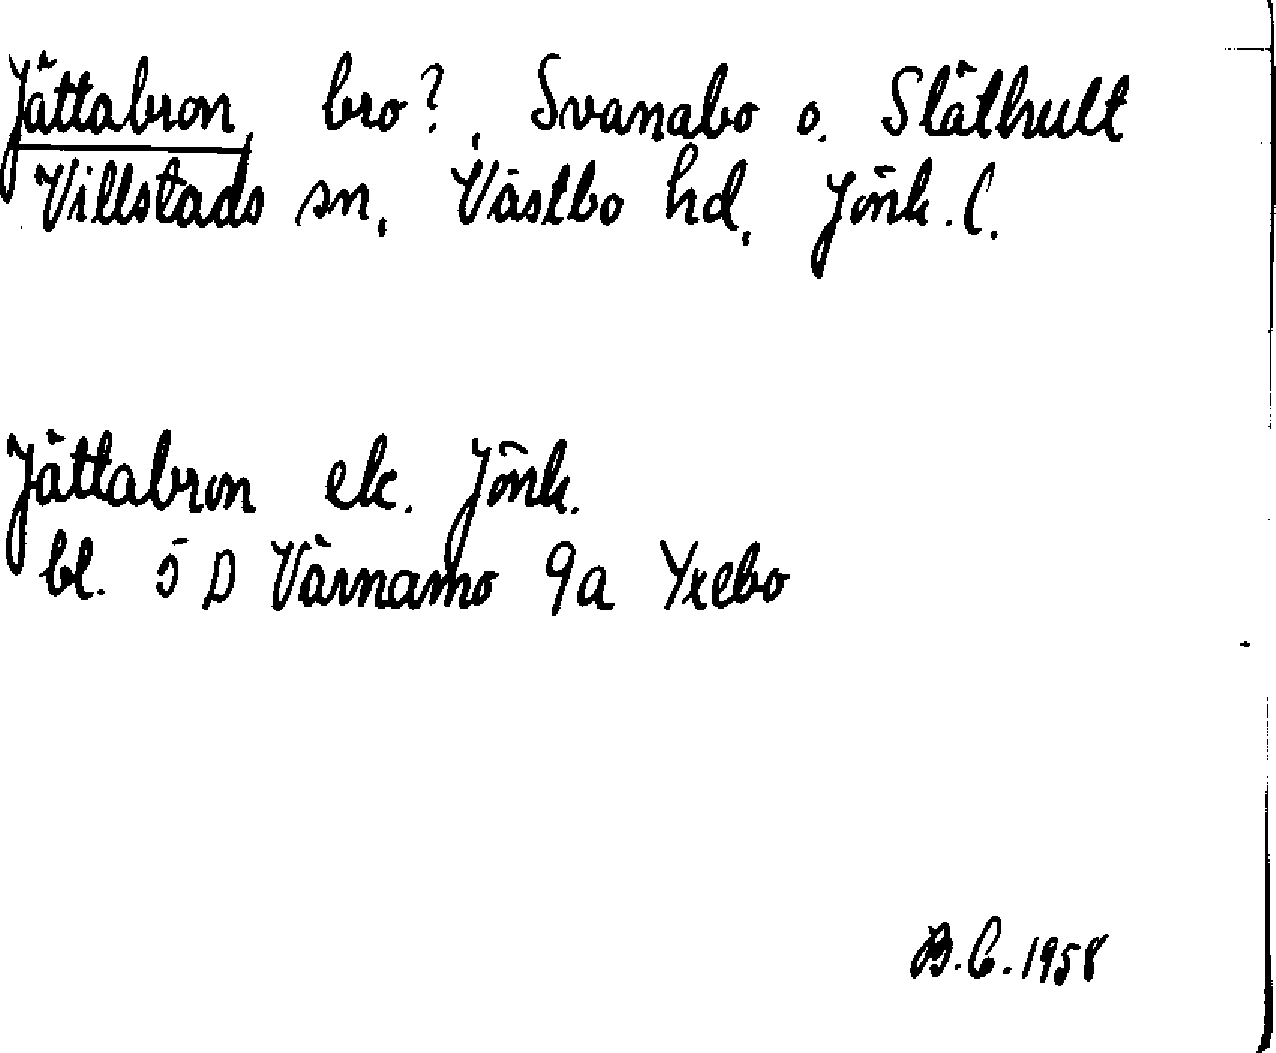 Jättabron, bro?, Svanabo o. Släthult
Villstads sn, Västbo hd, Jönk. l.
Jättabron ek. Jönk.
bl. 5 D Värnamo 9a Yxebo
B.C. 1958